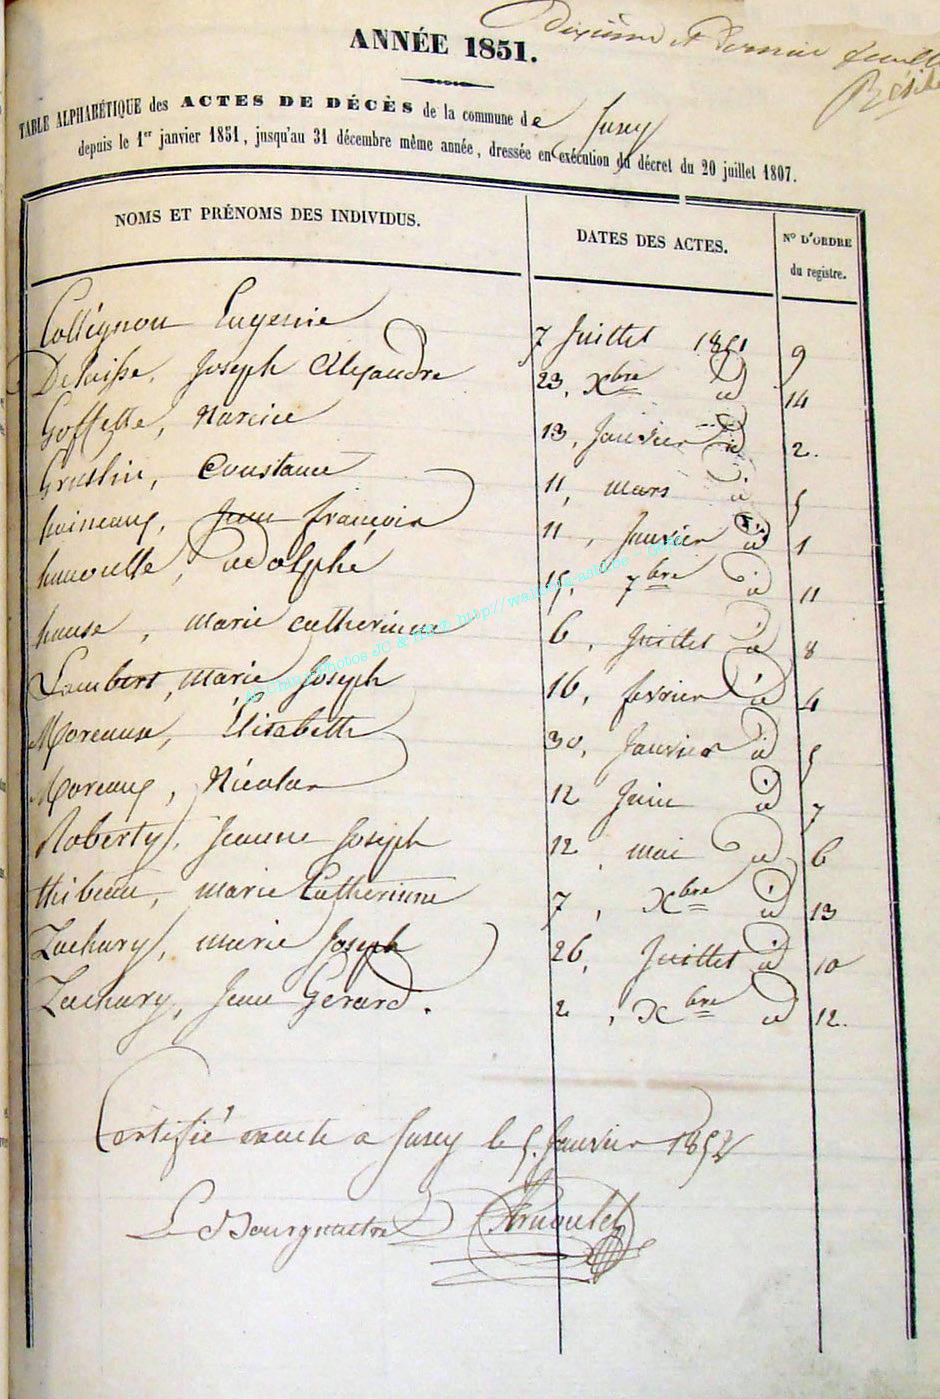 Dixième et Dernier feuille
ANNÉE 1851.
TABLE ALPHABÉTIQUE des ACTES DE DÉCÈS de la commune de Jusey
depuis le 1er janvier 1851, jusqu'au 31 décembre même année, dressée en exécution du décret du 20 juillet 1807.
NOMS ET PRÉNOMS DES INDIVIDUS. DATES DES ACTES. N° D'ORDRE du registre.
Collignon Eugenie 7 Juillet 1851 9
Delaisse, Joseph Alexandre 23, Xbre id 14
Goffette, Narcice 13, Janvier id 2.
Groslin, Constance 11, mars id 5
haineaux, Jean françois 11, Janvier id 1
hanoulle, adolphe 15, 7bre id 11
hause, marie catherinne 6, Juillet id 8
Lambert, marie Joseph 16, fevrier id 4
Moreaux, Élisabette 30, Janvier id
Moreaux, Nicolas 12 Juin id 7
Roberty, Jeanne Joseph 12, mai id 6
thibeau, marie Catherinne 7, Xbre id 13
Zachary, marie Joseph 26, Juillet id 10
Zachary, Jean Gerard. 2, Xbre id 12.
Certifié exacte a Jusey le 5. Janvier 1852
Le Bourgmestre